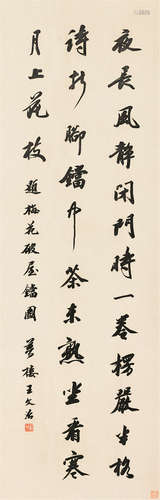 夜長風静閉門時一卷楞嚴半格
詩折脚鐺中茶未熟坐看寒
月上花枝 題梅花破屋鐺圖 夢樓王文治